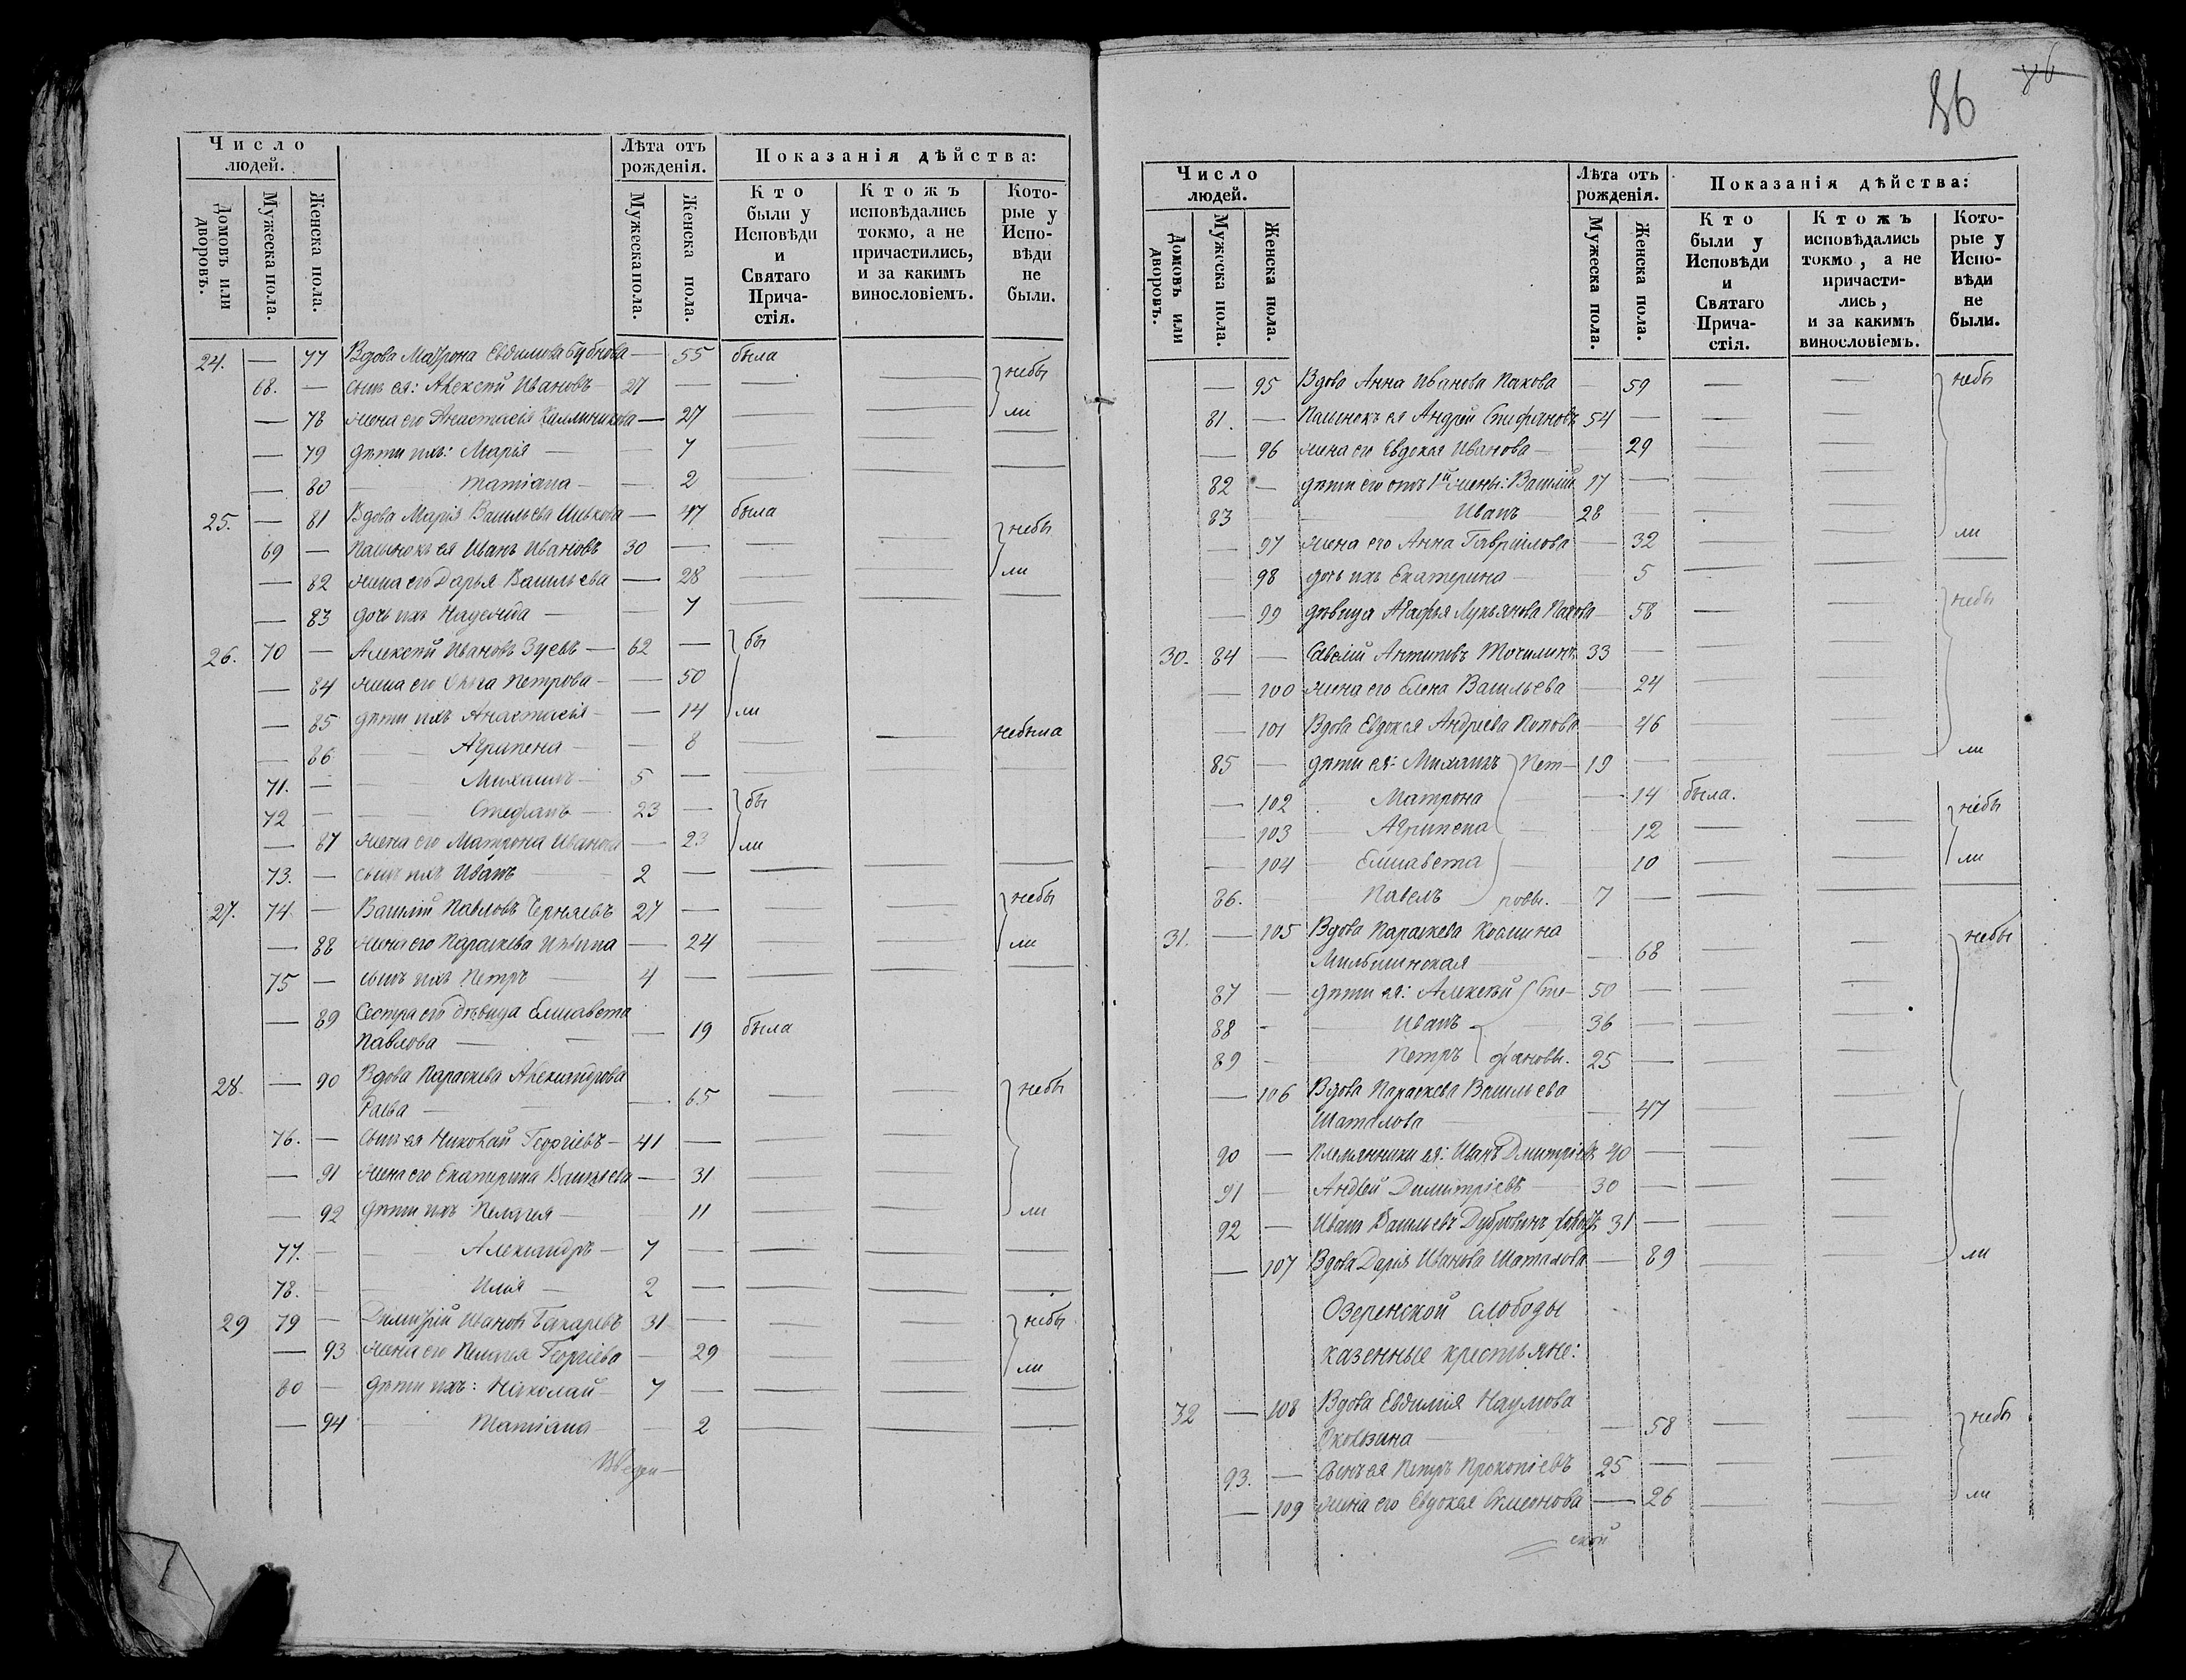 Число людей.
Лѣта отъ рожденія.
Показанія дѣйства:
Домовъ или дворовъ.
Мужеска пола.
Женска пола.
Мужеска пола.
Женска пола.
Кто были у Исповѣди и Святаго Прича-стія.
Ктожъ исповѣдались токмо, а не причастились, и за какимъ винословіемъ.
Кото-рые у Испо-вѣди не были.
24. — 77 Вдова Матрона Евѳимова Бубнова — 55 была
68. — сынъ ея: Алексѣй Ивановъ 27 — — — небы
— 78 жена его Анастасія — 27 — — ли
— 79 дѣти ихъ: Марія — 7 — — —
— 80 Татіана — 2 — — —
25. — 81 Вдова Марія Васильева — 47 была
69 — Пасынокъ ея Иванъ Ивановъ 30 — — — небы
— 82 жена его Дарья Васильева — 28 — — ли
— 83 дочь ихъ Надежда — 7 — — —
26. 70 — Алексѣй Ивановъ Зуевъ — 62 — бы
— 84 жена его Ольга Петрова — 50
— 85 дѣти ихъ Анастасія — 14 ли
— 86 Агрипена — 8 — — небыла
71. — Михаилъ 5 — — — —
72 — Стефанъ 23 — бы
— 87 жена его Матрона Иванова — 23 ли
73. — сынъ ихъ Иванъ 2 — — — —
27. 74 — Василій Павловъ Черняевъ 27 — — — небы
— 88 жена его Параскева — 24 — — ли
75 — сынъ ихъ Петръ 4 — — — —
— 89 Сестра его дѣвица Елисавета
Павлова — 19 была
28. — 90 Вдова Параскева Александрова
Раева — 65 — — небы
76. — Сынъ ея Николай Георгіевъ 41 — — —
— 91 жена его Екатерина Васильева — 31 — —
— 92 дѣти ихъ Пелагея — 11 — — ли
77. — Александръ 7 — — — —
78. — Илія 2 — — — —
29 79 — Димитрій Ивановъ Бакаревъ 31 — — — небы
— 93 жена его Пелагея Георгіева — 29 — — ли
80 — дѣти ихъ: Николай 7 — — — —
— 94 Татіана — 2 — — —
86
Число людей.
Лѣта отъ рожденія.
Показанія дѣйства:
Домовъ или дворовъ.
Мужеска пола.
Женска пола.
Мужеска пола.
Женска пола.
Кто были у Исповѣди и Святаго Прича-стія.
Ктожъ исповѣдались токмо, а не причасти-лись, и за какимъ винословіемъ.
Кото-рые у Испо-вѣди не были.
— 95 Вдова Анна Иванова Пахова — 59 — — небы
81. — Пасынокъ ея Андрей Стефановъ 54 — — —
— 96 жена его Евдокея Иванова — 29 — —
82 — дѣти его отъ 1й жены: Василій 17 — — —
83 Иванъ 28 — — —
— 97 жена его Анна Гавріилова — 32 — — ли
98 дочь ихъ Екатерина — 5 — — —
— 99 дѣвица Агафья Лукьянова Пахова — 58 — — небы
30. 84 — Савелій Антиповъ Точилинъ 33 — — —
— 100 жена его Елена Васильева — 24 — —
— 101 Вдова Евдокея Андреева Попова — 46 — —
85 — дѣти ея: Михаилъ Пет- 19 — — — ли
— 102 Матрона — 14 была.
— 103 Агрипена — 12 — — небы
— 104 Елисавета — 10 — — ли
86. Павелъ ровы. 7 — — — —
31. — 105 Вдова Параскева Космина
— 68 — — небы
87 — дѣти ея: Алексѣй Сте- 50 — — —
88 - Иванъ 36 — — —
89 - Петръ фановы. 25 — — —
— 106 Вдова Параскева Васильева
Шаталова — 47 — —
90 — Племянники ея: Иванъ Дмитріевъ 40 — — —
91 — Андрей Димитріевъ 30 — — —
92 — Иванъ Васильевъ Дубровинъ 31 — — —
— 107 Вдова Дарія Иванова Шаталова — 89 — — ли
Озеренской слободы
казенные крестьяне:
32 — 108 Вдова Евѳимія Наумова
— 58 — — небы
93. — Сынъ ея Петръ Прокопіевъ 25 — — —
— 109 жена его Евдокея Симеонова — 26 — — ли
ской